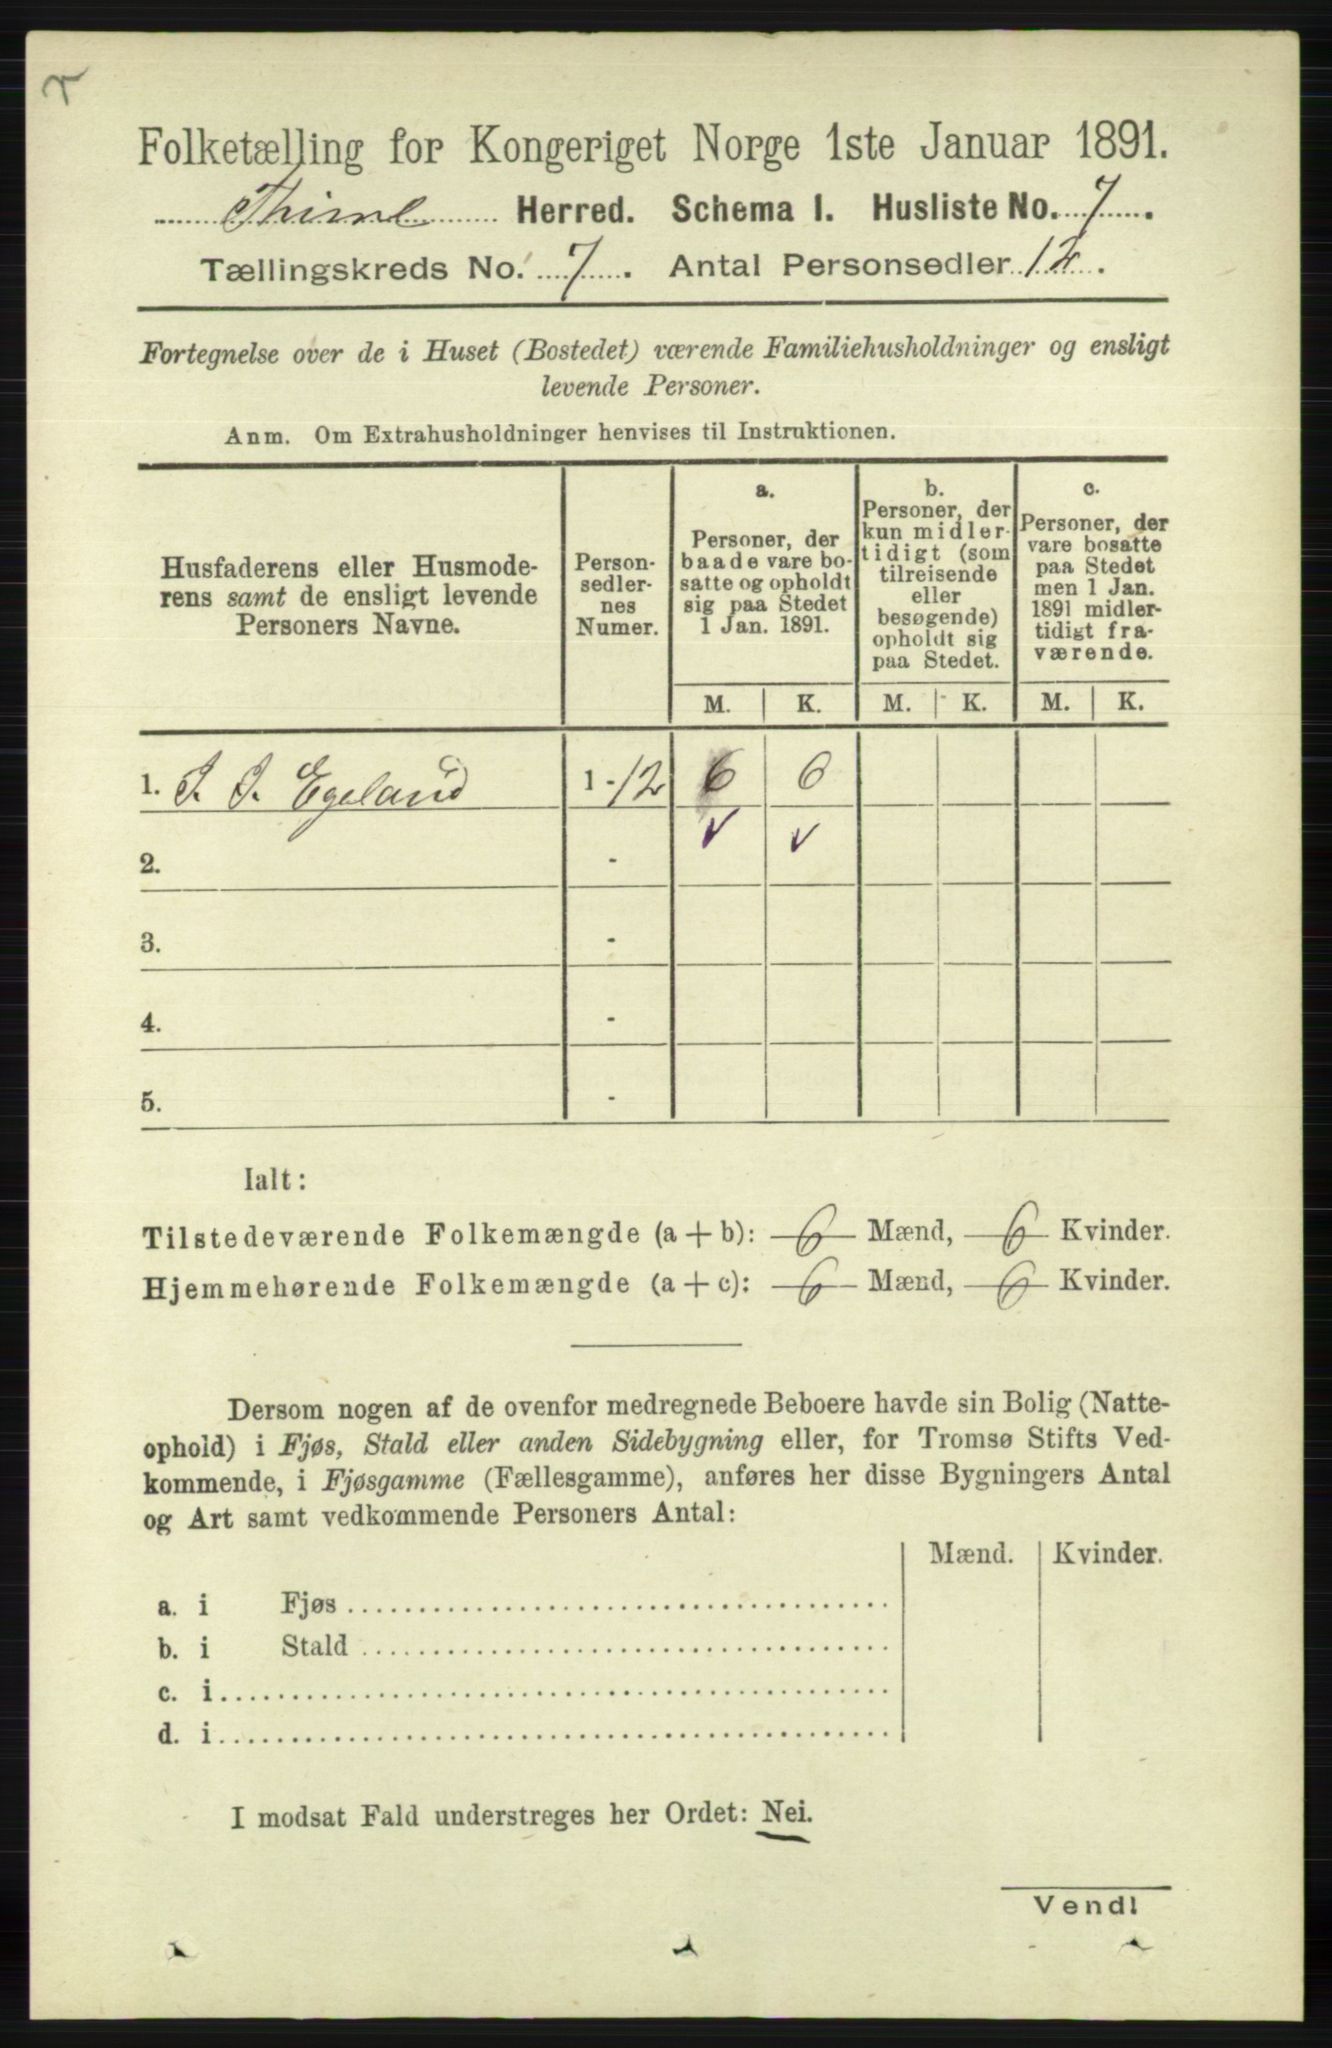 Folketælling for Kongeriget Norge 1ste Januar 1891.
Thime Herred. Schema I. Husliste No. 7.
Tællingskreds No. 7. Antal Personsedler 12.
Fortegnelse over de i Huset (Bostedet) værende Familiehusholdninger og ensligt
levende Personer.
Anm. Om Extrahusholdninger henvises til Instruktionen.
Husfaderens eller Husmode-
rens samt de ensligt levende
Personers Navne.
Person-
sedler-
nes
Numer.
a.
Personer, der
baade vare bo-
satte og opholdt
sig paa Stedet
1 Jan. 1891.
b.
Personer, der
kun midler-
tidigt (som
tilreisende
eller
besøgende)
opholdt sig
paa Stedet.
c.
Personer, der
vare bosatte
paa Stedet
men 1 Jan.
1891 midler-
tidigt fra-
værende.
M. K. M. K. M. K.
1. J. J. Egeland 1 - 12 6 6
2. -
3. -
4. -
5. -
Ialt:
Tilstedeværende Folkemængde (a + b): 6 Mænd, 6 Kvinder.
Hjemmehørende Folkemængde (a + c): 6 Mænd, 6 Kvinder.
Dersom nogen af de ovenfor medregnede Beboere havde sin Bolig (Natte-
ophold) i Fjøs, Stald eller anden Sidebygning eller, for Tromsø Stifts Ved-
kommende, i Fjøsgamme (Fællesgamme), anføres her disse Bygningers Antal
og Art samt vedkommende Personers Antal:
Mænd. Kvinder.
a. i Fjøs
b. i Stald
c. i
d. i
I modsat Fald understreges her Ordet: Nei.
Vend!